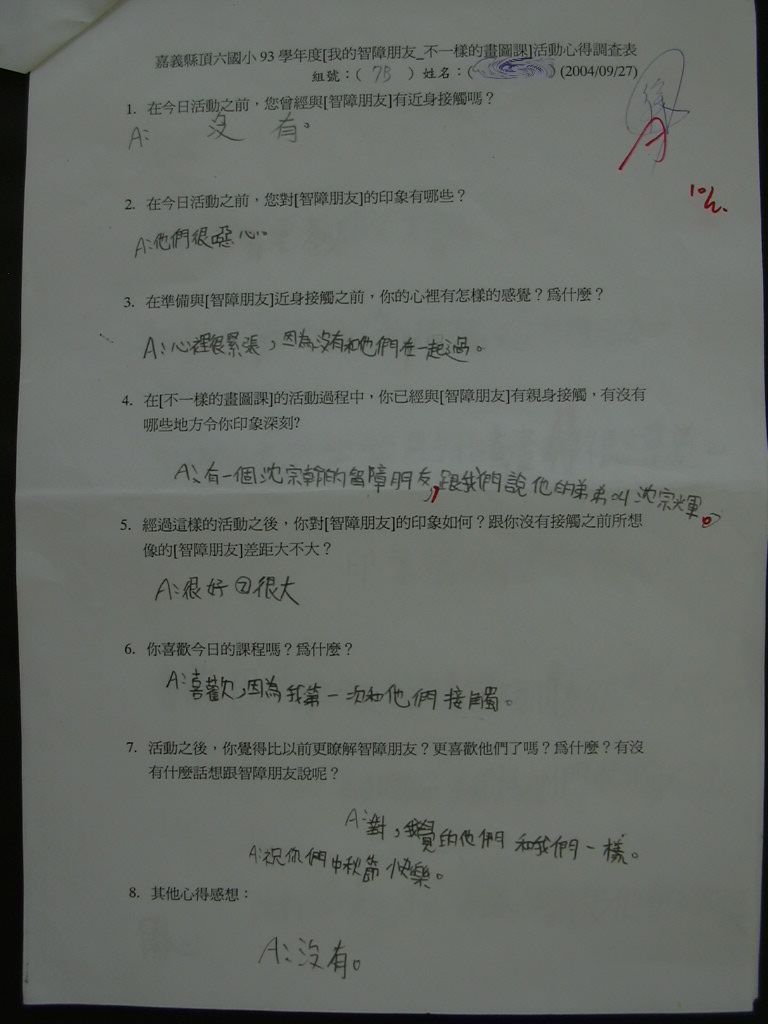 嘉義縣頂六國小 93 學年度[我的智障朋友_不一樣的畫圖課]活動心得調查表
組號：( 7B ) 姓名：( ) (2004/09/27)
1. 在今日活動之前，您曾經與[智障朋友]有近身接觸嗎？
A: 沒有。
A
10/2.
2. 在今日活動之前，您對[智障朋友]的印象有哪些？
A:他們很噁心。
3. 在準備與[智障朋友]近身接觸之前，你的心裡有怎樣的感覺？爲什麼？
A:心裡很緊張，因為沒有和他們在一起過。
4. 在[不一樣的畫圖課]的活動過程中，你已經與[智障朋友]有親身接觸，有沒有
哪些地方令你印象深刻?
A:有一個沈宗翰的智障朋友，跟我們說他的弟弟叫沈宗。
5. 經過這樣的活動之後，你對[智障朋友]的印象如何？跟你沒有接觸之前所想
像的[智障朋友]差距大不大？
A:很好②很大
6. 你喜歡今日的課程嗎？爲什麼？
A:喜歡，因為我第一次和他們接觸。
7. 活動之後，你覺得比以前更瞭解智障朋友？更喜歡他們了嗎？爲什麼？有沒
有什麼話想跟智障朋友說呢？
A:對，我覺的他們和我們一樣。
A:祝你們中秋節快樂。
8. 其他心得感想：
A:沒有。